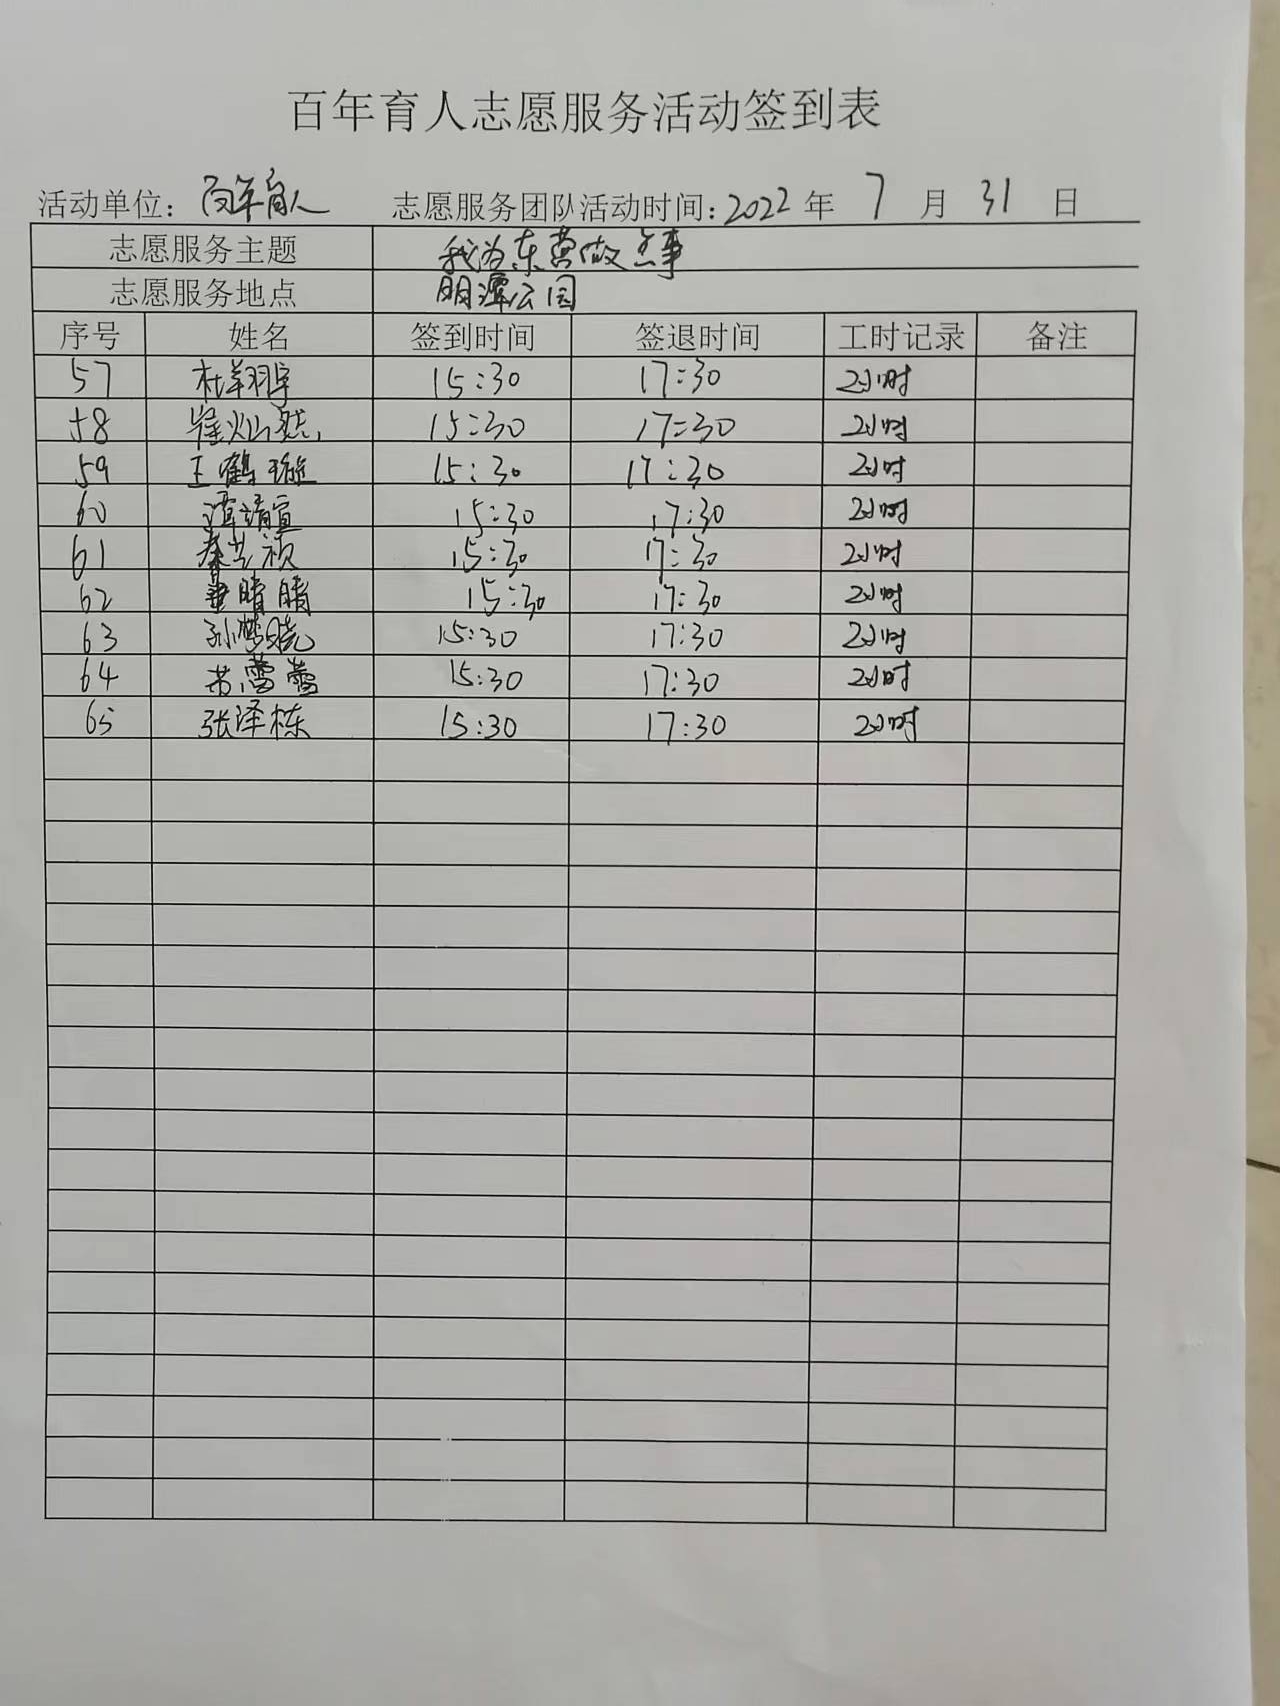 百年育人志愿服务活动签到表
活动单位：百年育人 志愿服务团队活动时间：2022年 7 月 31 日
志愿服务主题 我为东营做点事
志愿服务地点 明潭公园
序号 姓名 签到时间 签退时间 工时记录 备注
57 杜羊羽宇 15:30 17:30 2小时
58 崔灿然 15:30 17:30 2小时
59 王鹤璇 15:30 17:30 2小时
60 谭靖宣 15:30 17:30 2小时
61 秦艺祯 15:30 17:30 2小时
62 董晴晴 15:30 17:30 2小时
63 孙梦晓 15:30 17:30 2小时
64 苏蕾蕾 15:30 17:30 2小时
65 张泽栋 15:30 17:30 2小时